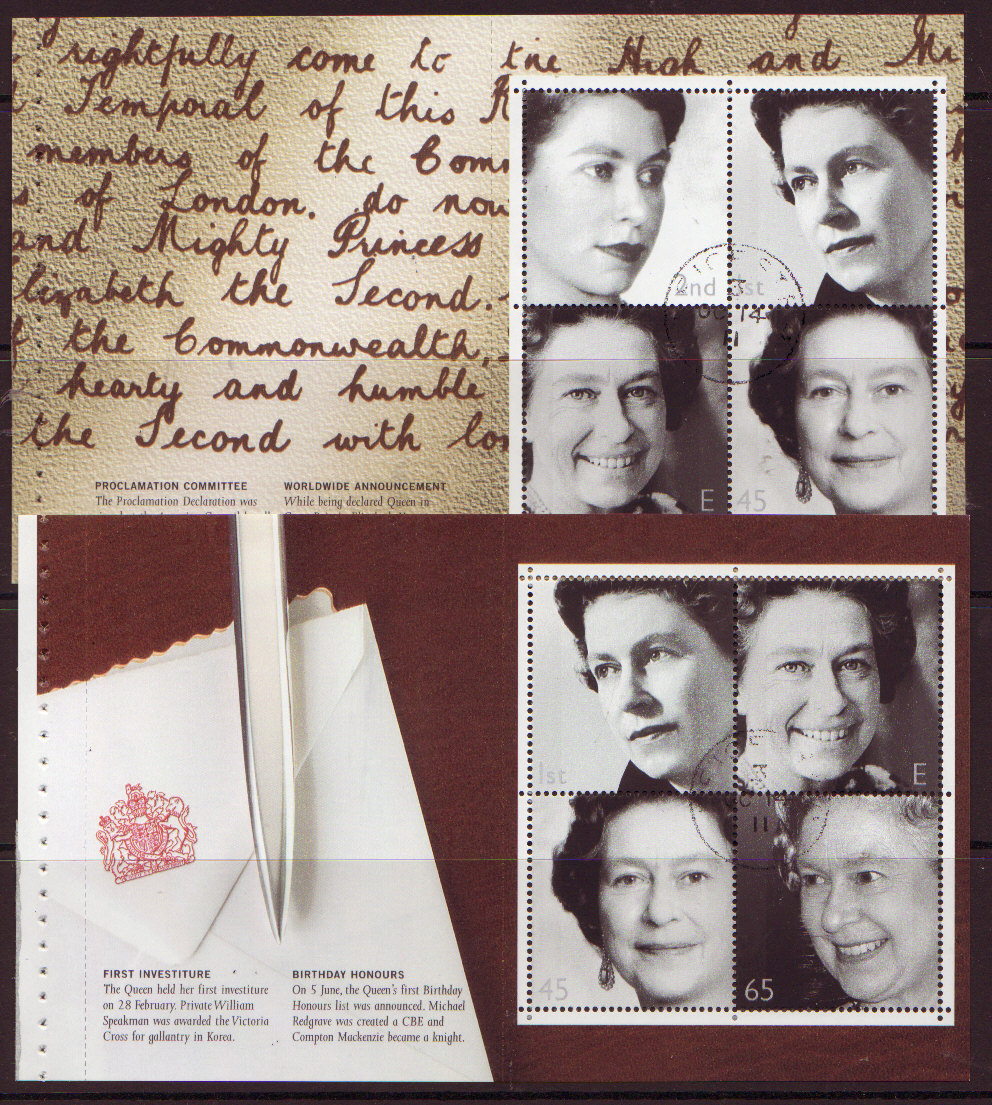 rightfully come to the High and Mi
Temporal of this R
members of the Comm
s of London, do now
and Mighty Princess
lizabeth the Second.
f the Commonwealth,
hearty and humble
the Second with lo
2nd
1st
E
45
3
OC 14
11
PROCLAMATION COMMITTEE
The Proclamation Declaration was
WORLDWIDE ANNOUNCEMENT
While being declared Queen in
1st
E
45
65
3
OC 14
11
FIRST INVESTITURE
The Queen held her first investiture
on 28 February. Private William
Speakman was awarded the Victoria
Cross for gallantry in Korea.
BIRTHDAY HONOURS
On 5 June, the Queen's first Birthday
Honours list was announced. Michael
Redgrave was created a CBE and
Compton Mackenzie became a knight.